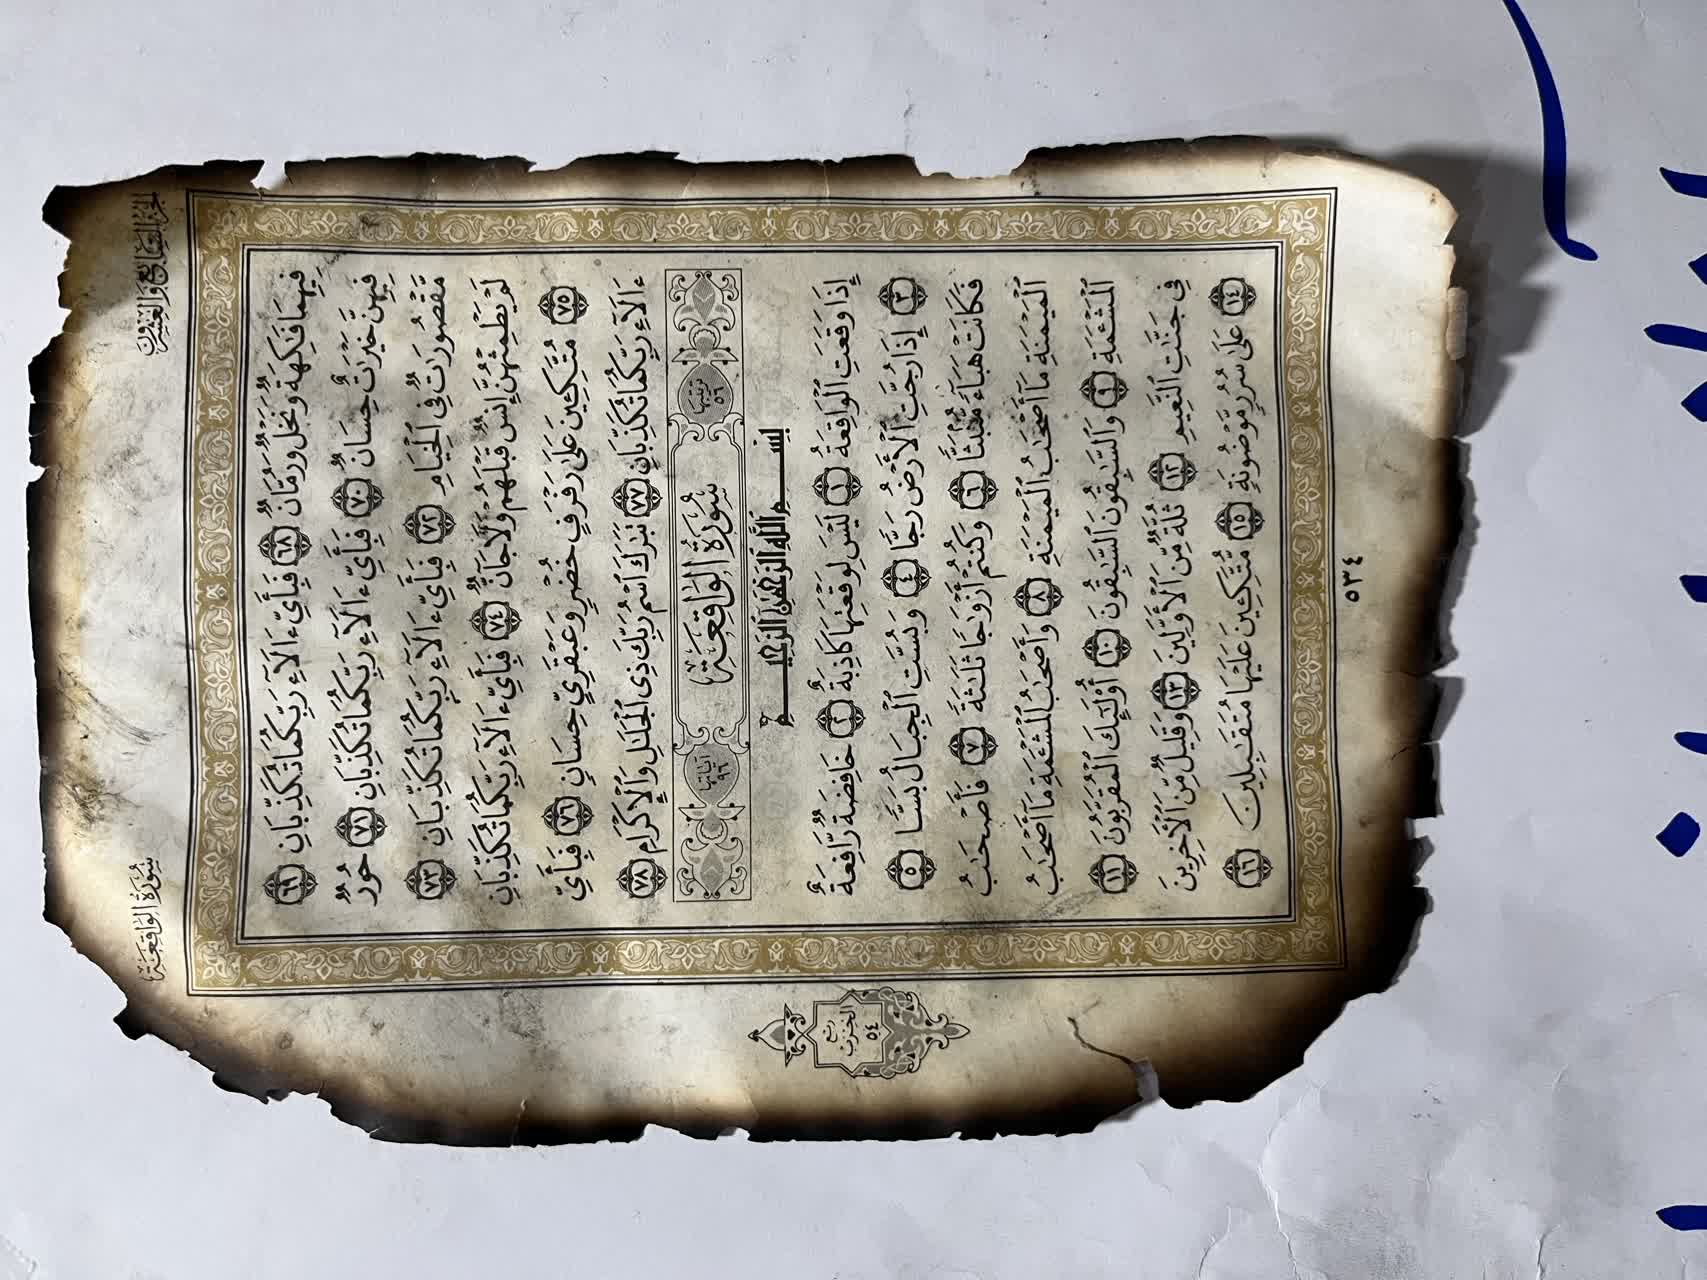 سُورَةُ الوَاقِعَة
الجزء السابع والعشرون
فِيهِمَا فَٰكِهَةٌ وَنَخْلٌ وَرُمَّانٌ ٦٨ فَبِأَيِّ ءَالَآءِ رَبِّكُمَا تُكَذِّبَانِ ٦٩
فِيهِنَّ خَيْرَٰتٌ حِسَانٌ ٧٠ فَبِأَيِّ ءَالَآءِ رَبِّكُمَا تُكَذِّبَانِ ٧١ حُورٌ
مَّقْصُورَٰتٌ فِي ٱلْخِيَامِ ٧٢ فَبِأَيِّ ءَالَآءِ رَبِّكُمَا تُكَذِّبَانِ ٧٣
لَمْ يَطْمِثْهُنَّ إِنسٌ قَبْلَهُمْ وَلَا جَآنٌّ ٧٤ فَبِأَيِّ ءَالَآءِ رَبِّكُمَا تُكَذِّبَانِ
٧٥ مُتَّكِـِٔينَ عَلَىٰ رَفْرَفٍ خُضْرٍ وَعَبْقَرِيٍّ حِسَانٍ ٧٦ فَبِأَيِّ
ءَالَآءِ رَبِّكُمَا تُكَذِّبَانِ ٧٧ تَبَٰرَكَ ٱسْمُ رَبِّكَ ذِى ٱلْجَلَٰلِ وَٱلْإِكْرَامِ ٧٨
ترتيبها ٥٦ سُورَةُ الوَاقِعَة آياتها ٩٦
بِسْمِ ٱللَّهِ ٱلرَّحْمَٰنِ ٱلرَّحِيمِ
إِذَا وَقَعَتِ ٱلْوَاقِعَةُ ١ لَيْسَ لِوَقْعَتِهَا كَاذِبَةٌ ٢ خَافِضَةٌ رَّافِعَةٌ
٣ إِذَا رُجَّتِ ٱلْأَرْضُ رَجًّا ٤ وَبُسَّتِ ٱلْجِبَالُ بَسًّا ٥
فَكَانَتْ هَبَآءً مُّنۢبَثًّا ٦ وَكُنتُمْ أَزْوَٰجًا ثَلَٰثَةً ٧ فَأَصْحَٰبُ
ٱلْمَيْمَنَةِ مَآ أَصْحَٰبُ ٱلْمَيْمَنَةِ ٨ وَأَصْحَٰبُ ٱلْمَشْـَٔمَةِ مَآ أَصْحَٰبُ
ٱلْمَشْـَٔمَةِ ٩ وَٱلسَّٰبِقُونَ ٱلسَّٰبِقُونَ ١٠ أُو۟لَٰٓئِكَ ٱلْمُقَرَّبُونَ ١١
فِى جَنَّٰتِ ٱلنَّعِيمِ ١٢ ثُلَّةٌ مِّنَ ٱلْأَوَّلِينَ ١٣ وَقَلِيلٌ مِّنَ ٱلْءَاخِرِينَ
١٤ عَلَىٰ سُرُرٍ مَّوْضُونَةٍ ١٥ مُّتَّكِـِٔينَ عَلَيْهَا مُتَقَٰبِلِينَ ١٦
ربع
الحزب
٥٤
٥٣٤